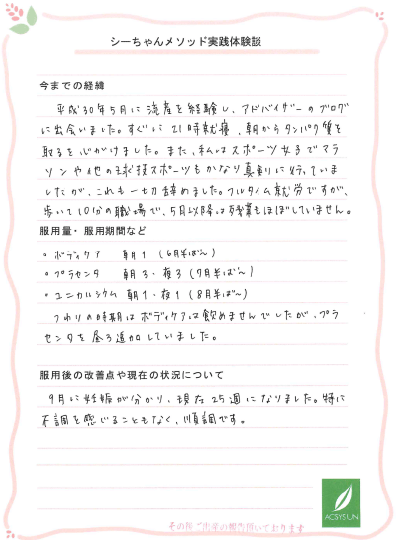 シーちゃんメソッド実践体験談
今までの経緯
平成30年5月に流産を経験し、アドバイザーのブログ
に出会いました。すぐに21時就寝、朝からタンパク質を
取るを心がけました。また、私はスポーツ女子でマラ
ソンや他の球技スポーツもかなり真剣に行っていま
したが、これも一切辞めました。フルタイム就労ですが、
歩いて10分の職場で、5月以降は残業もほぼしていません。
服用量・服用期間など
・ボディケア 朝1（6月半ば〜）
・プラセンタ 朝3・夜3（7月半ば〜）
・ユニカルシウム 朝1・夜1（8月半ば〜）
つわりの時期はボディケアは飲めませんでしたが、プラ
センタを昼3追加していました。
服用後の改善点や現在の状況について
9月に妊娠が分かり、現在25週になりました。特に
不調を感じることもなく、順調です。
ACSYSUN
その後ご出産の報告頂いております